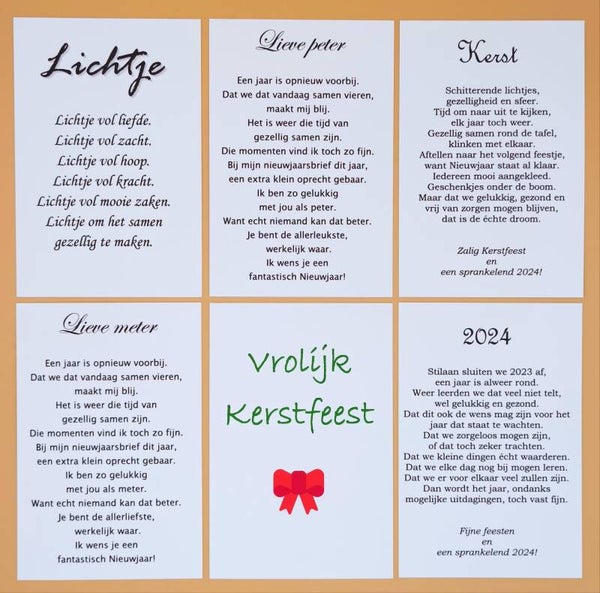 Lichtje
Lichtje vol liefde.
Lichtje vol zacht.
Lichtje vol hoop.
Lichtje vol kracht.
Lichtje vol mooie zaken.
Lichtje om het samen
gezellig te maken.
Lieve peter
Een jaar is opnieuw voorbij.
Dat we dat vandaag samen vieren,
maakt mij blij.
Het is weer die tijd van
gezellig samen zijn.
Die momenten vind ik toch zo fijn.
Bij mijn nieuwjaarsbrief dit jaar,
een extra klein oprecht gebaar.
Ik ben zo gelukkig
met jou als peter.
Want echt niemand kan dat beter.
Je bent de allerleukste,
werkelijk waar.
Ik wens je een
fantastisch Nieuwjaar!
Kerst
Schitterende lichtjes,
gezelligheid en sfeer.
Tijd om naar uit te kijken,
elk jaar toch weer.
Gezellig samen rond de tafel,
klinken met elkaar.
Aftellen naar het volgend feestje,
want Nieuwjaar staat al klaar.
Iedereen mooi aangekleed.
Geschenkjes onder de boom.
Maar dat we gelukkig, gezond en
vrij van zorgen mogen blijven,
dat is de échte droom.
Zalig Kerstfeest
en
een sprankelend 2024!
Lieve meter
Een jaar is opnieuw voorbij.
Dat we dat vandaag samen vieren,
maakt mij blij.
Het is weer die tijd van
gezellig samen zijn.
Die momenten vind ik toch zo fijn.
Bij mijn nieuwjaarsbrief dit jaar,
een extra klein oprecht gebaar.
Ik ben zo gelukkig
met jou als meter.
Want echt niemand kan dat beter.
Je bent de allerliefste,
werkelijk waar.
Ik wens je een
fantastisch Nieuwjaar!
Vrolijk
Kerstfeest
2024
Stilaan sluiten we 2023 af,
een jaar is alweer rond.
Weer leerden we dat veel niet telt,
wel gelukkig en gezond.
Dat dit ook de wens mag zijn voor het
jaar dat staat te wachten.
Dat we zorgeloos mogen zijn,
of dat toch zeker trachten.
Dat we kleine dingen écht waarderen.
Dat we elke dag nog bij mogen leren.
Dat we er voor elkaar veel zullen zijn.
Dan wordt het jaar, ondanks
mogelijke uitdagingen, toch vast fijn.
Fijne feesten
en
een sprankelend 2024!